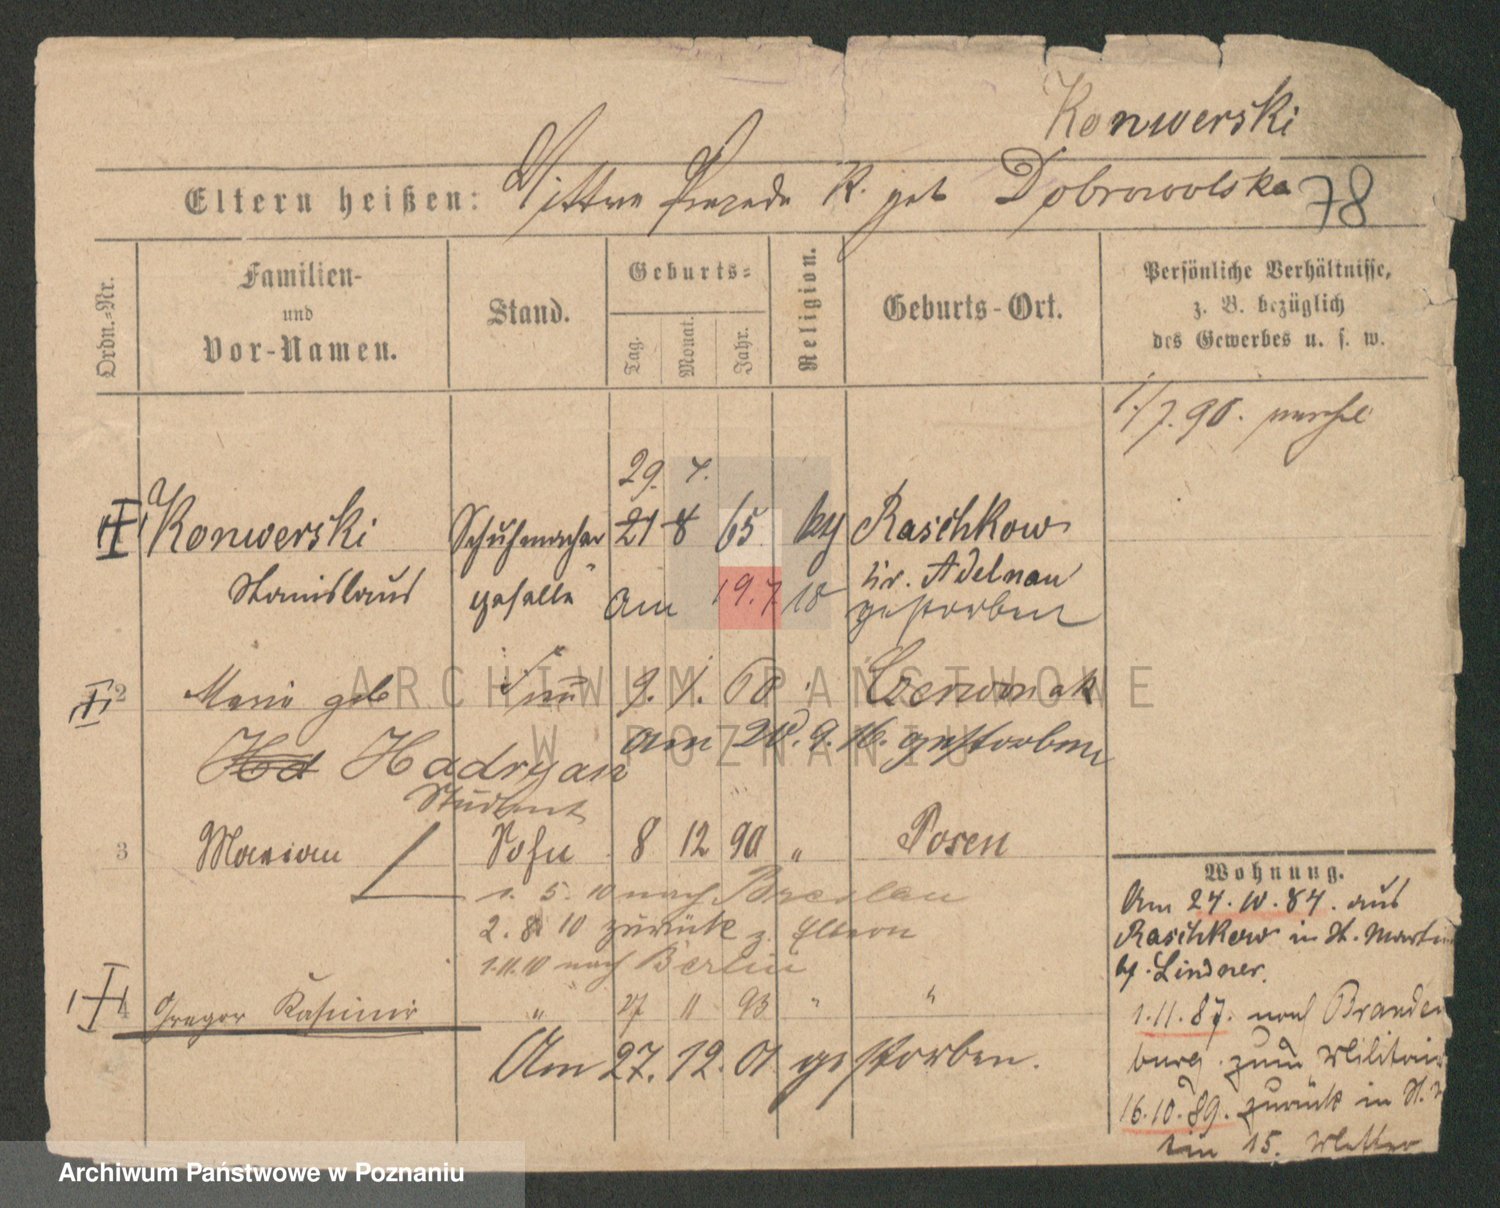 Konwerski
Eltern heißen: K. geb Dobrowolska 78
Ordn.-Nr.
Familien-
und
Vor-Namen.
Stand.
Geburts-
Tag.
Monat.
Jahr.
Religion.
Geburts-Ort.
Persönliche Verhältnisse,
z. B. bezüglich
des Gewerbes u. s. w.
1./7.90.
29. 4.
Konwerski Schuhmacher 21 8 65 Raschkow
Stanislaus geselle Kr. Adelnau
am 19.7.18 gestorben
2 Maria geb 9. 1. 60 Czerwonak
Hd Hadryan am 20. 9. 16. gestorben
Student
3 Marian Sohn 8 12 90 " Posen
1. 5. 10 nach Breslau
2. 8 10 zurück z. Eltern
1.11.10 nach Berlin
4 Gregor Kasimir " 27 11 93 " "
Am 27. 12. 01 gestorben.
Wohnung.
Am 24. 10. 84. aus
Raschkow in St. Martin
bei Lindner.
1.11.87. nach Branden
burg zum Militair
16.10.89. zurück in St.
15.
ARCHIWUM PAŃSTWOWE
W POZNANIU
Archiwum Państwowe w Poznaniu